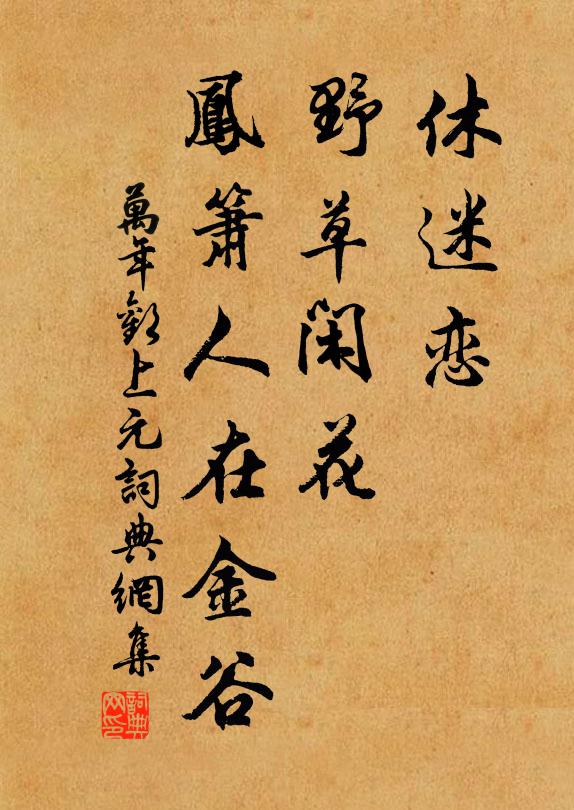 休迷恋
野草闲花
鳳簫人在金谷
萬年歡上元詞典網集
詞典
网印